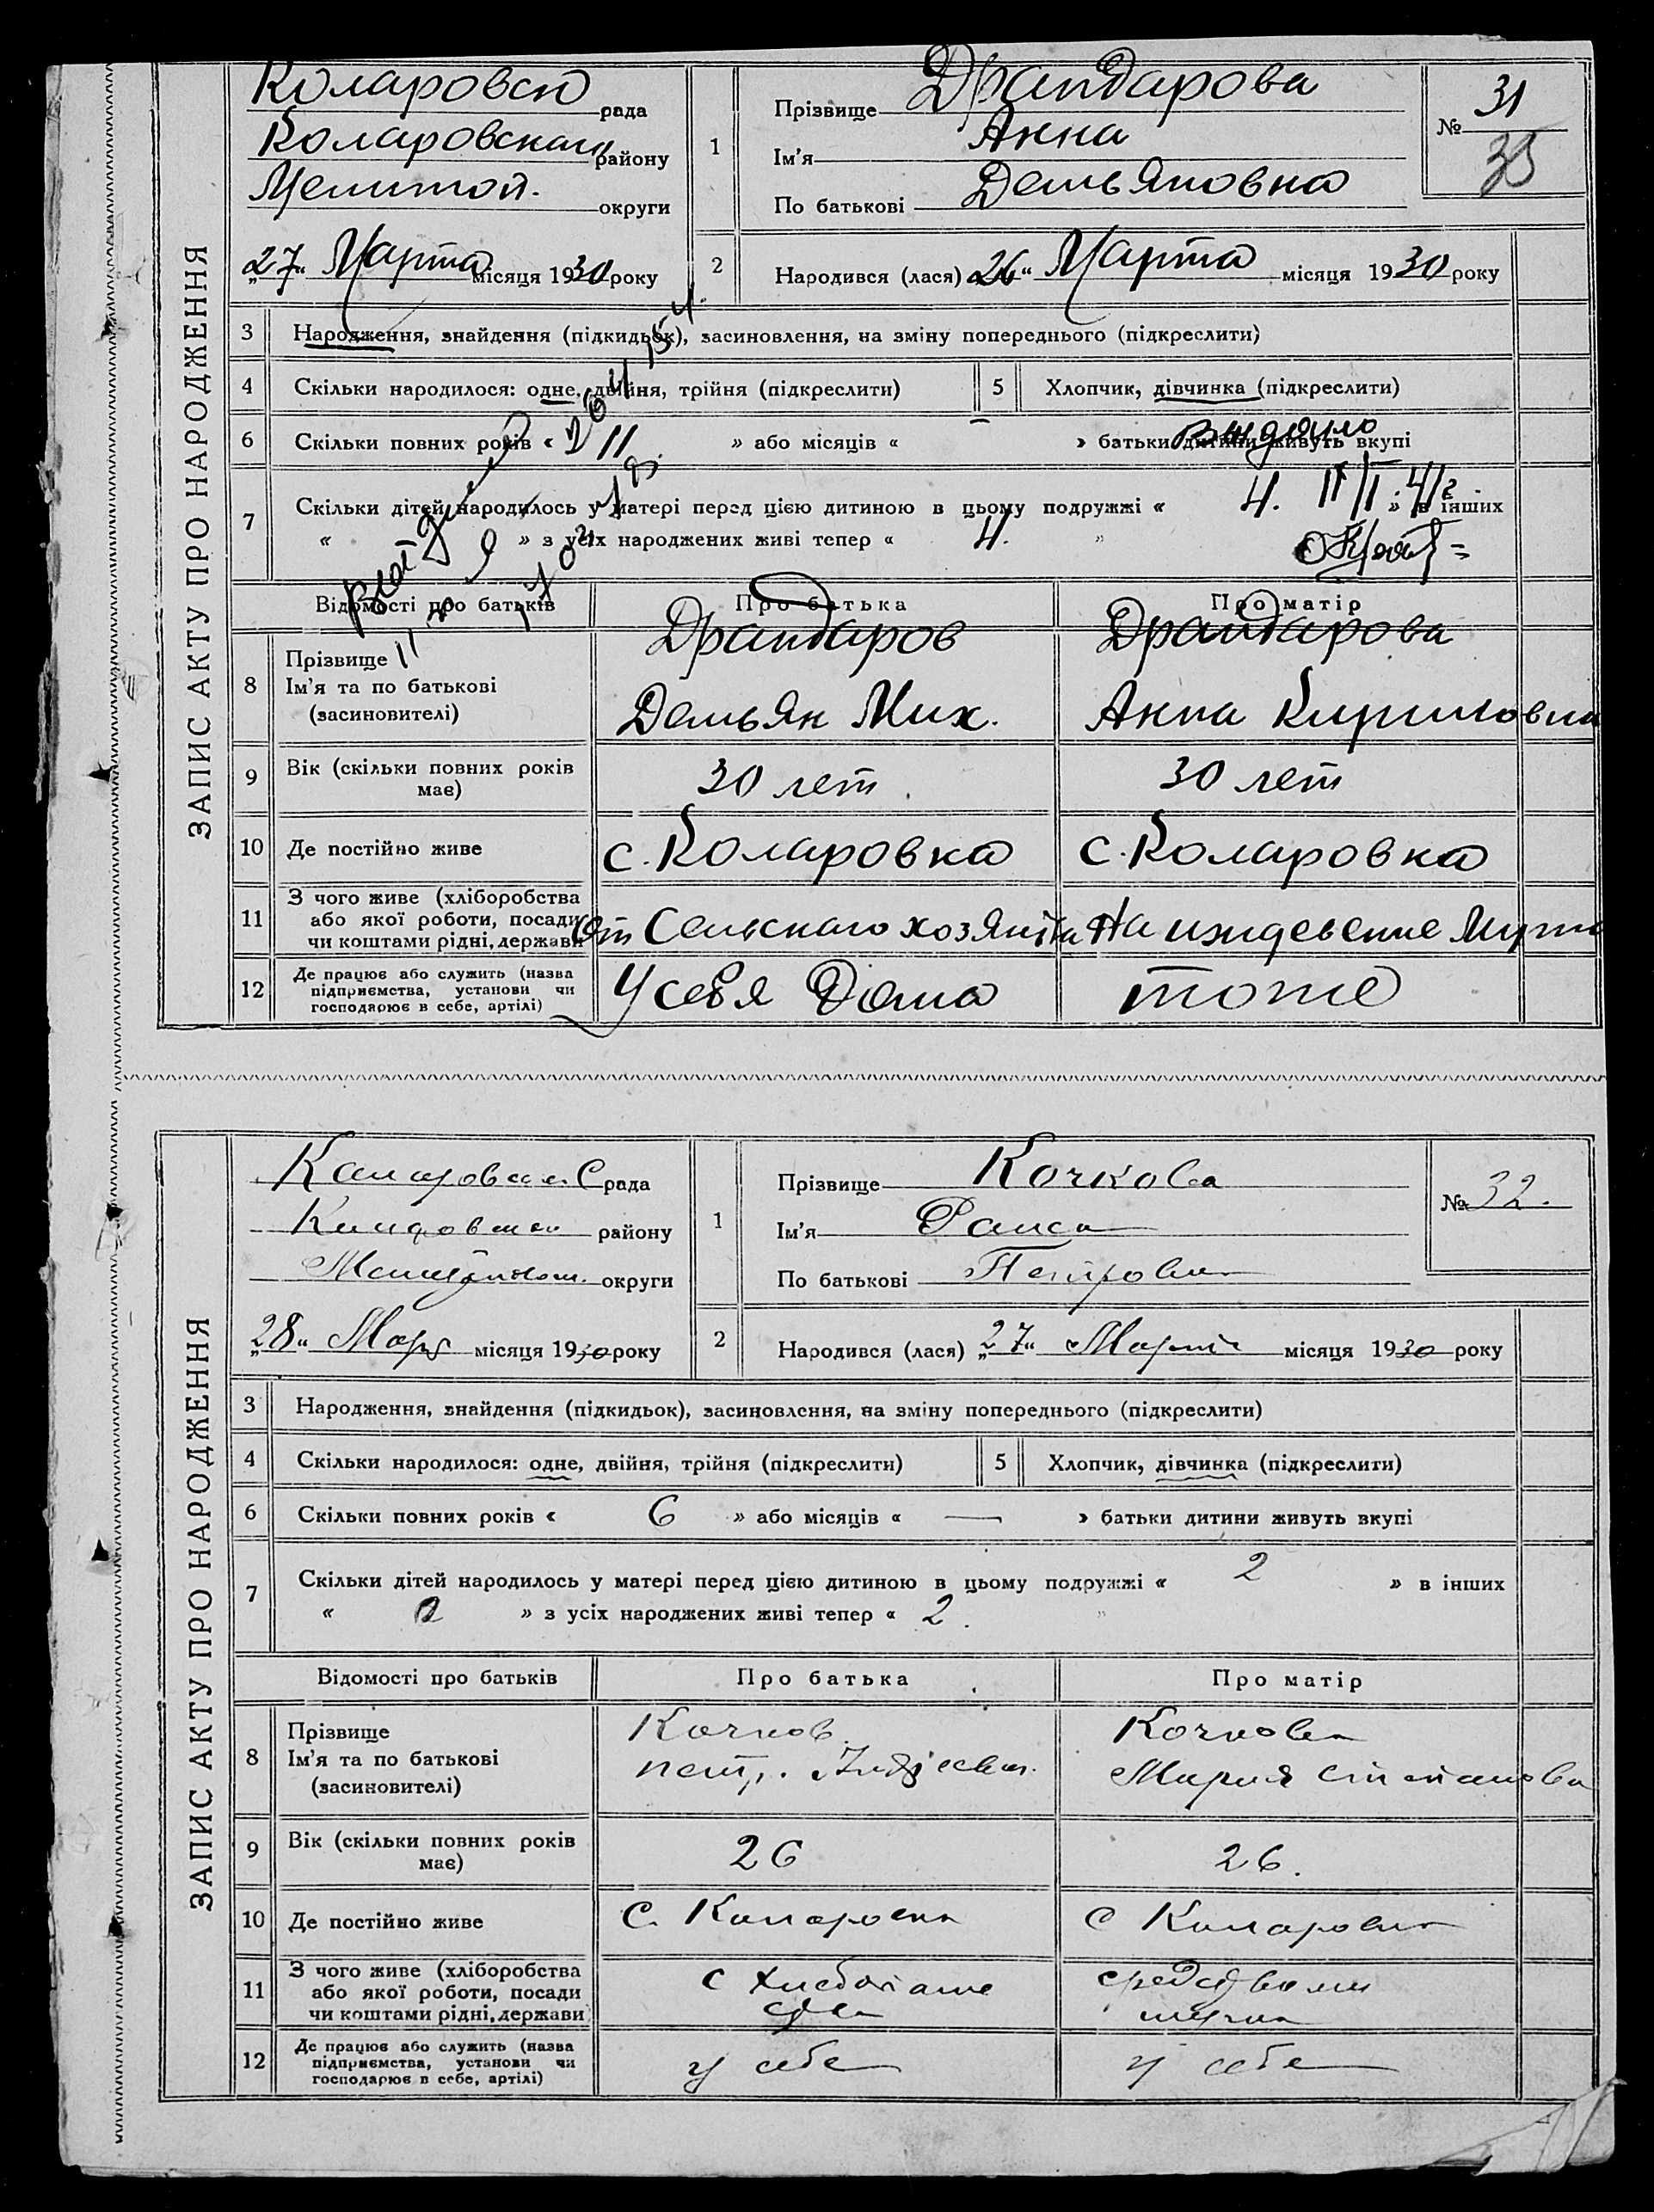 ЗАПИС АКТУ ПРО НАРОДЖЕННЯ
Коларовско рада
Коларовскаго району
Мелитоп. округи
„27“ Марта місяця 1930 року
1
Прізвище Драндарова
Ім'я Анна
По батькові Демьяновна
№ 31
35
2
Народився (лася) „26“ Марта місяця 1930 року
3 Народження, знайдення (підкидьок), засиновлення, на зміну попереднього (підкреслити)
4 Скільки народилося: одне, двійня, трійня (підкреслити)
5 Хлопчик, дівчинка (підкреслити)
6 Скільки повних років « 11 » або місяців « – » батьки дитини живуть вкупі
7 Скільки дітей народилось у матері перед цією дитиною в цьому подружжі « 4. » в інших
« » з усіх народжених живі тепер « 4. »
Відомості про батьків Про батька Про матір
8 Прізвище
Ім'я та по батькові
(засиновителі)
Драндаров
Демьян Мих.
Драндарова
Анна Кириловна
9 Вік (скільки повних років має) 30 лет. 30 лет
10 Де постійно живе с. Коларовка с. Коларовка
11 З чого живе (хліборобства
або якої роботи, посади
чи коштами рідні, держави
От Сельскаго хозяйства На иждевение Мужа
12 Де працює або служить (назва
підприємства, установи чи
господарює в себе, артілі)
У себя Дома тоже
ЗАПИС АКТУ ПРО НАРОДЖЕННЯ
рада
району
округи
„28“ місяця 1930 року
1
Прізвище Кочкова
Ім'я Раиса
По батькові Петровна
№ 32.
2
Народився (лася) „27“ Марта місяця 1930 року
3 Народження, знайдення (підкидьок), засиновлення, на зміну попереднього (підкреслити)
4 Скільки народилося: одне, двійня, трійня (підкреслити)
5 Хлопчик, дівчинка (підкреслити)
6 Скільки повних років « 6 » або місяців « — » батьки дитини живуть вкупі
7 Скільки дітей народилось у матері перед цією дитиною в цьому подружжі « 2 » в інших
« » з усіх народжених живі тепер « 2. »
Відомості про батьків Про батька Про матір
8 Прізвище
Ім'я та по батькові
(засиновителі)
Кочков
Петр.
Кочкова
Мария Степанова
9 Вік (скільки повних років має) 26 26.
10 Де постійно живе с. Коларовка с Коларовка
11 З чого живе (хліборобства
або якої роботи, посади
чи коштами рідні, держави
с
средствами
мужа
12 Де працює або служить (назва
підприємства, установи чи
господарює в себе, артілі)
у себе у себе